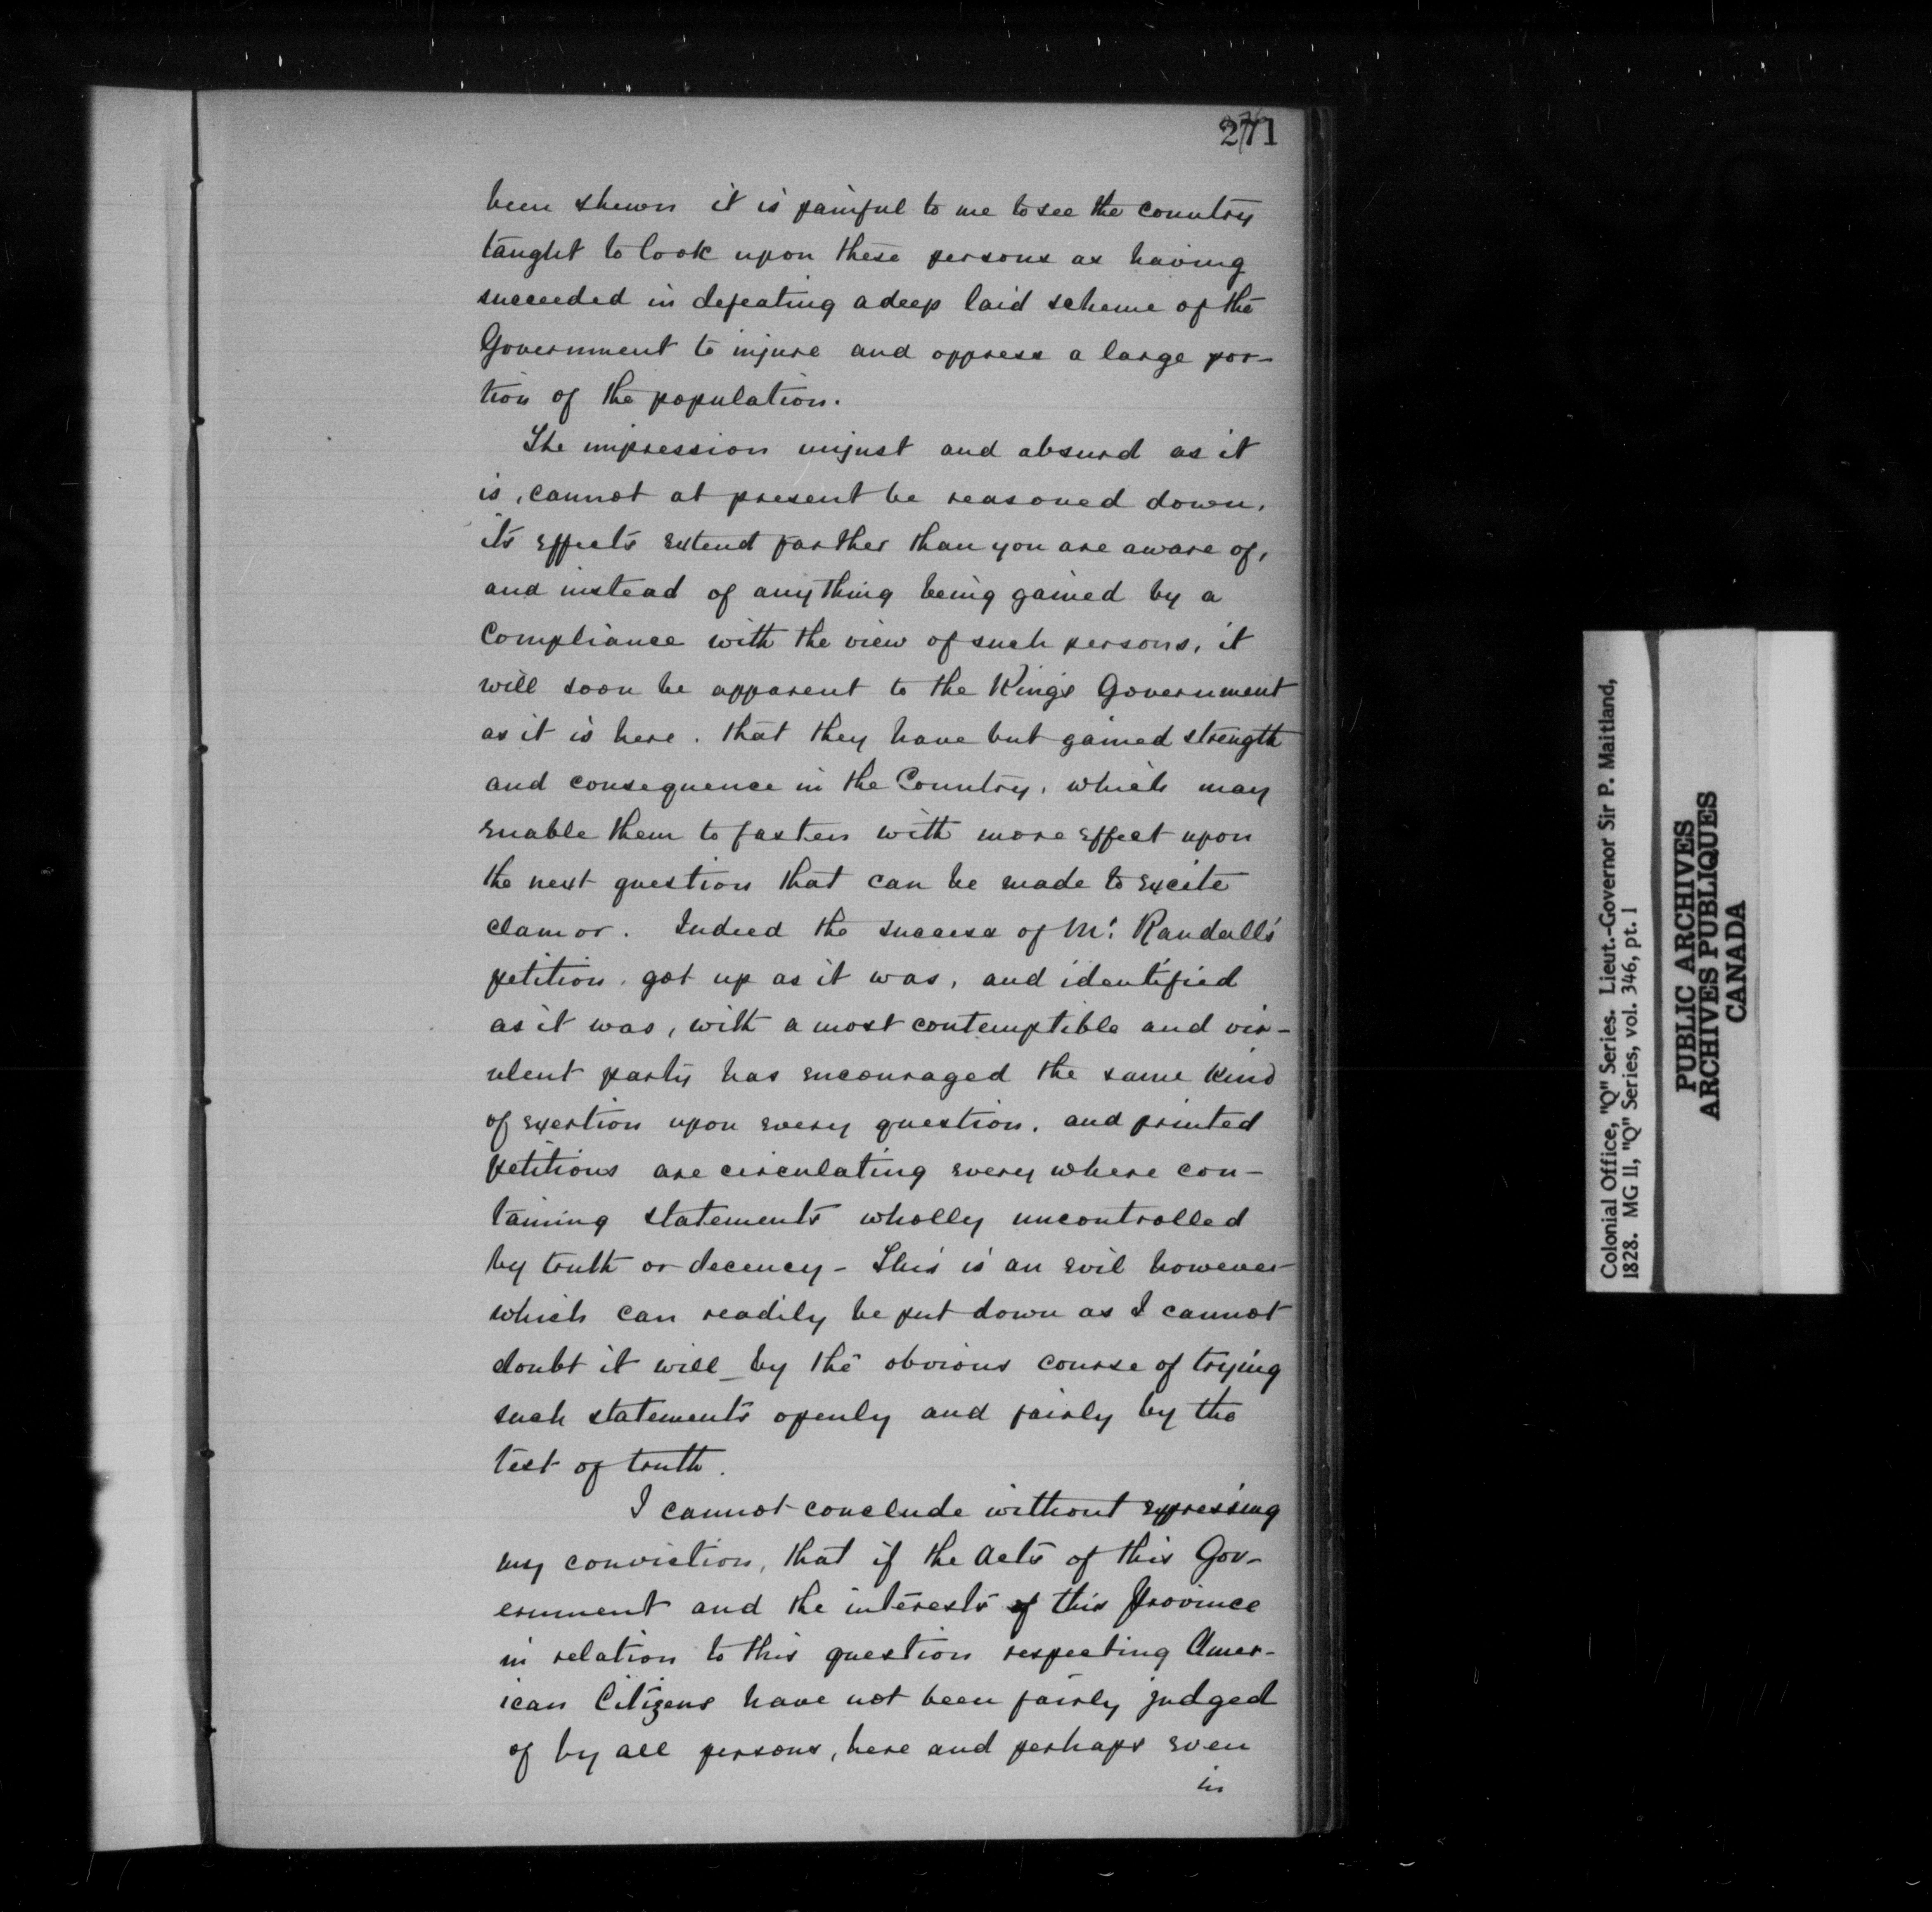 271
been shewn it is painful to me to see the country
taught to look upon these persons as having
succeeded in defeating a deep laid scheme of the
Government to injure and oppress a large por-
tion of the population.
The impression unjust and absurd as it
is, cannot at present be reasoned down,
its effects extend farther than you are aware of,
and instead of anything being gained by a
Compliance with the view of such persons, it
will soon be apparent to the Kings Government
as it is here. that they have but gained strength
and consequence in the Country, which may
enable them to fasten with more effect upon
the next question that can be made to excite
clamor. Indeed the success of Mr. Randall's
petition, got up as it was, and identified
as it was, with a most contemptible and vir-
ulent party has encouraged the same kind
of exertion upon every question, and printed
petitions are circulating every where con-
taining statements wholly uncontrolled
by truth or decency - This is an evil however
which can readily be put down as I cannot
doubt it will _ by the obvious course of trying
such statements openly and fairly by the
test of truth.
I cannot conclude without expressing
my conviction, that if the Acts of this Gov-
ernment and the interests of this Province
in relation to this question respecting Amer-
ican Citizens have not been fairly judged
of by all persons, here and perhaps even
in
Colonial Office, "Q" Series. Lieut.-Governor Sir P. Maitland,
1828. MG 11, "Q" Series, vol. 346, pt. 1
PUBLIC ARCHIVES
ARCHIVES PUBLIQUES
CANADA